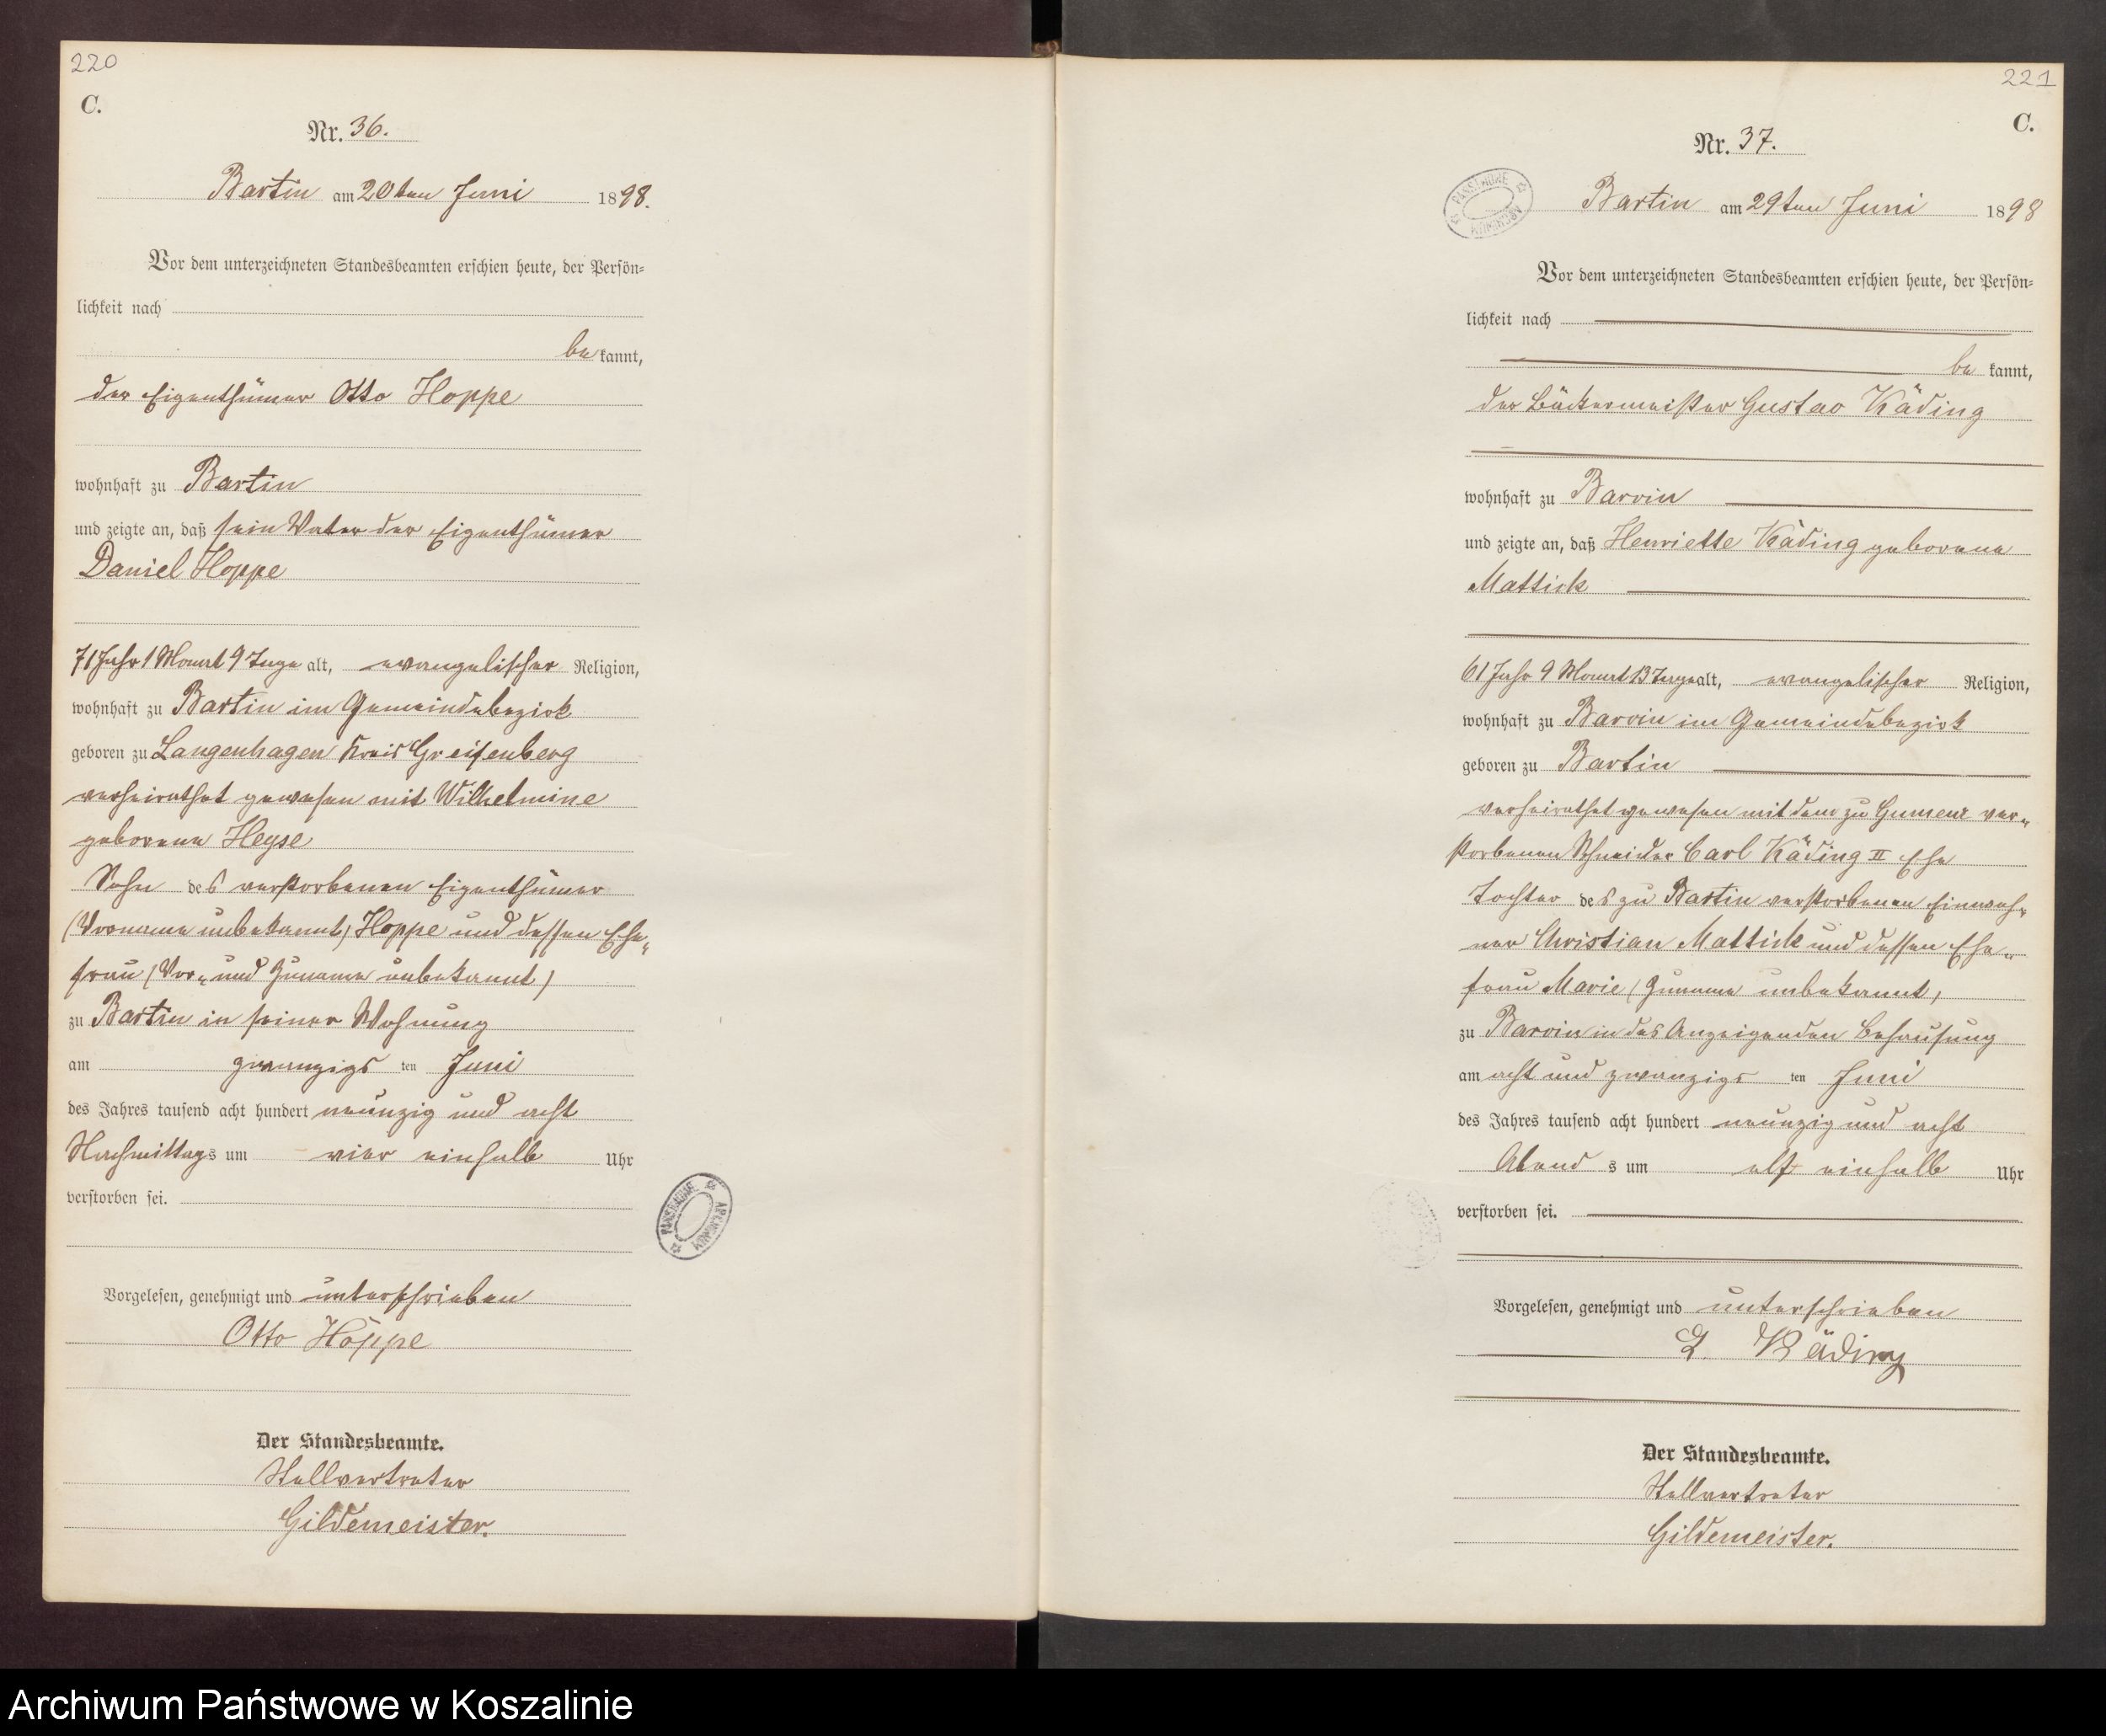 220
C.
Nr. 36.
Bartin am 20ten Juni 1898.
Vor dem unterzeichneten Standesbeamten erschien heute, der Persön-
lichkeit nach
be kannt,
der Eigenthümer Otto Hoppe
wohnhaft zu Bartin
und zeigte an, daß sein Vater der Eigenthümer
Daniel Hoppe
71 Jahr 1 Monat 9 Tage alt, evangelischer Religion,
wohnhaft zu Bartin im Gemeindebezirk
geboren zu Langenhagen Kreis Greifenberg
verheirathet gewesen mit Wilhelmine
geborene Heyse
Sohn des verstorbenen Eigenthümer
(Vorname unbekannt) Hoppe und dessen Ehe-
frau (Vor- und Zuname unbekannt)
zu Bartin in seiner Wohnung
am zwanzigs ten Juni
des Jahres tausend acht hundert neunzig und acht
Nachmittags um vier einhalb Uhr
verstorben sei.
Vorgelesen, genehmigt und unterschrieben
Otto Hoppe
Der Standesbeamte.
Stellvertreter
Gildemeister.
221
C.
Nr. 37.
Bartin am 29ten Juni 1898
Vor dem unterzeichneten Standesbeamten erschien heute, der Persön-
lichkeit nach
be kannt,
der Bäckermeister Gustav Käding
wohnhaft zu Barvin
und zeigte an, daß Henriette Käding geborene
Mattick
61 Jahr 9 Monat 13 Tage alt, evangelischer Religion,
wohnhaft zu Barvin im Gemeindebezirk
geboren zu Bartin
verheirathet gewesen mit dem zu Gumenz ver-
storbenen Schneider Carl Käding II Ehe
Tochter des zu Bartin verstorbenen Einwoh-
ner Christian Mattick und dessen Ehe-
frau Marie (Zuname unbekannt)
zu Barvin in des Anzeigenden Behausung
am acht und zwanzigs ten Juni
des Jahres tausend acht hundert neunzig und acht
Abend s um elf einhalb Uhr
verstorben sei.
Vorgelesen, genehmigt und unterschrieben
Käding
Der Standesbeamte.
Stellvertreter
Gildemeister.
Archiwum Państwowe w Koszalinie